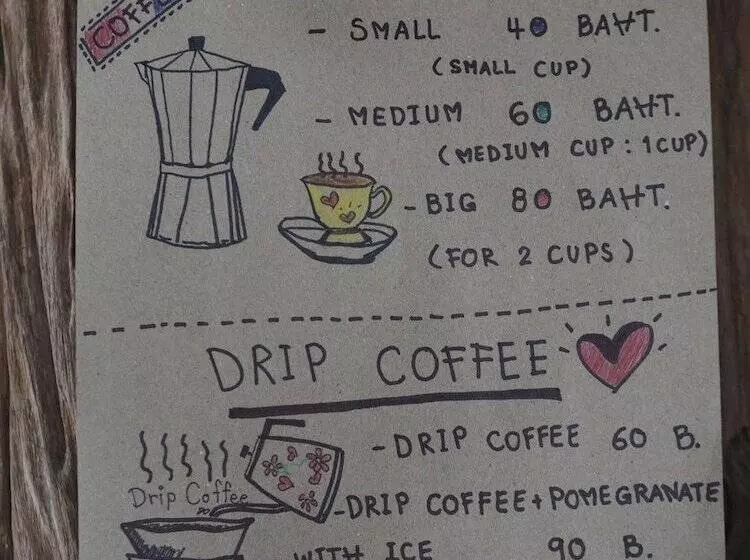 COFF
- SMALL 40 BAHT.
(SMALL CUP)
- MEDIUM 60 BAHT.
(MEDIUM CUP : 1CUP)
- BIG 80 BAHT.
(FOR 2 CUPS)
DRIP COFFEE
- DRIP COFFEE 60 B.
Drip Coffee
- DRIP COFFEE + POMEGRANATE
WITH ICE 90 B.